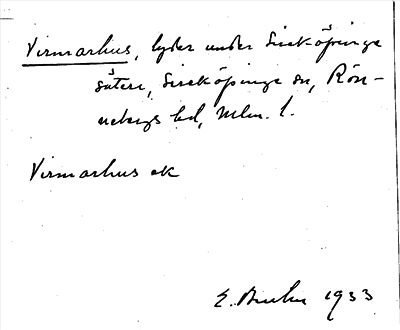 Virmarhus, lyder under Sireköpinge
säteri, Sireköpinge sn, Rön-
nebergs hd, Mlm. l.
Virmarhus ek
E. 1933